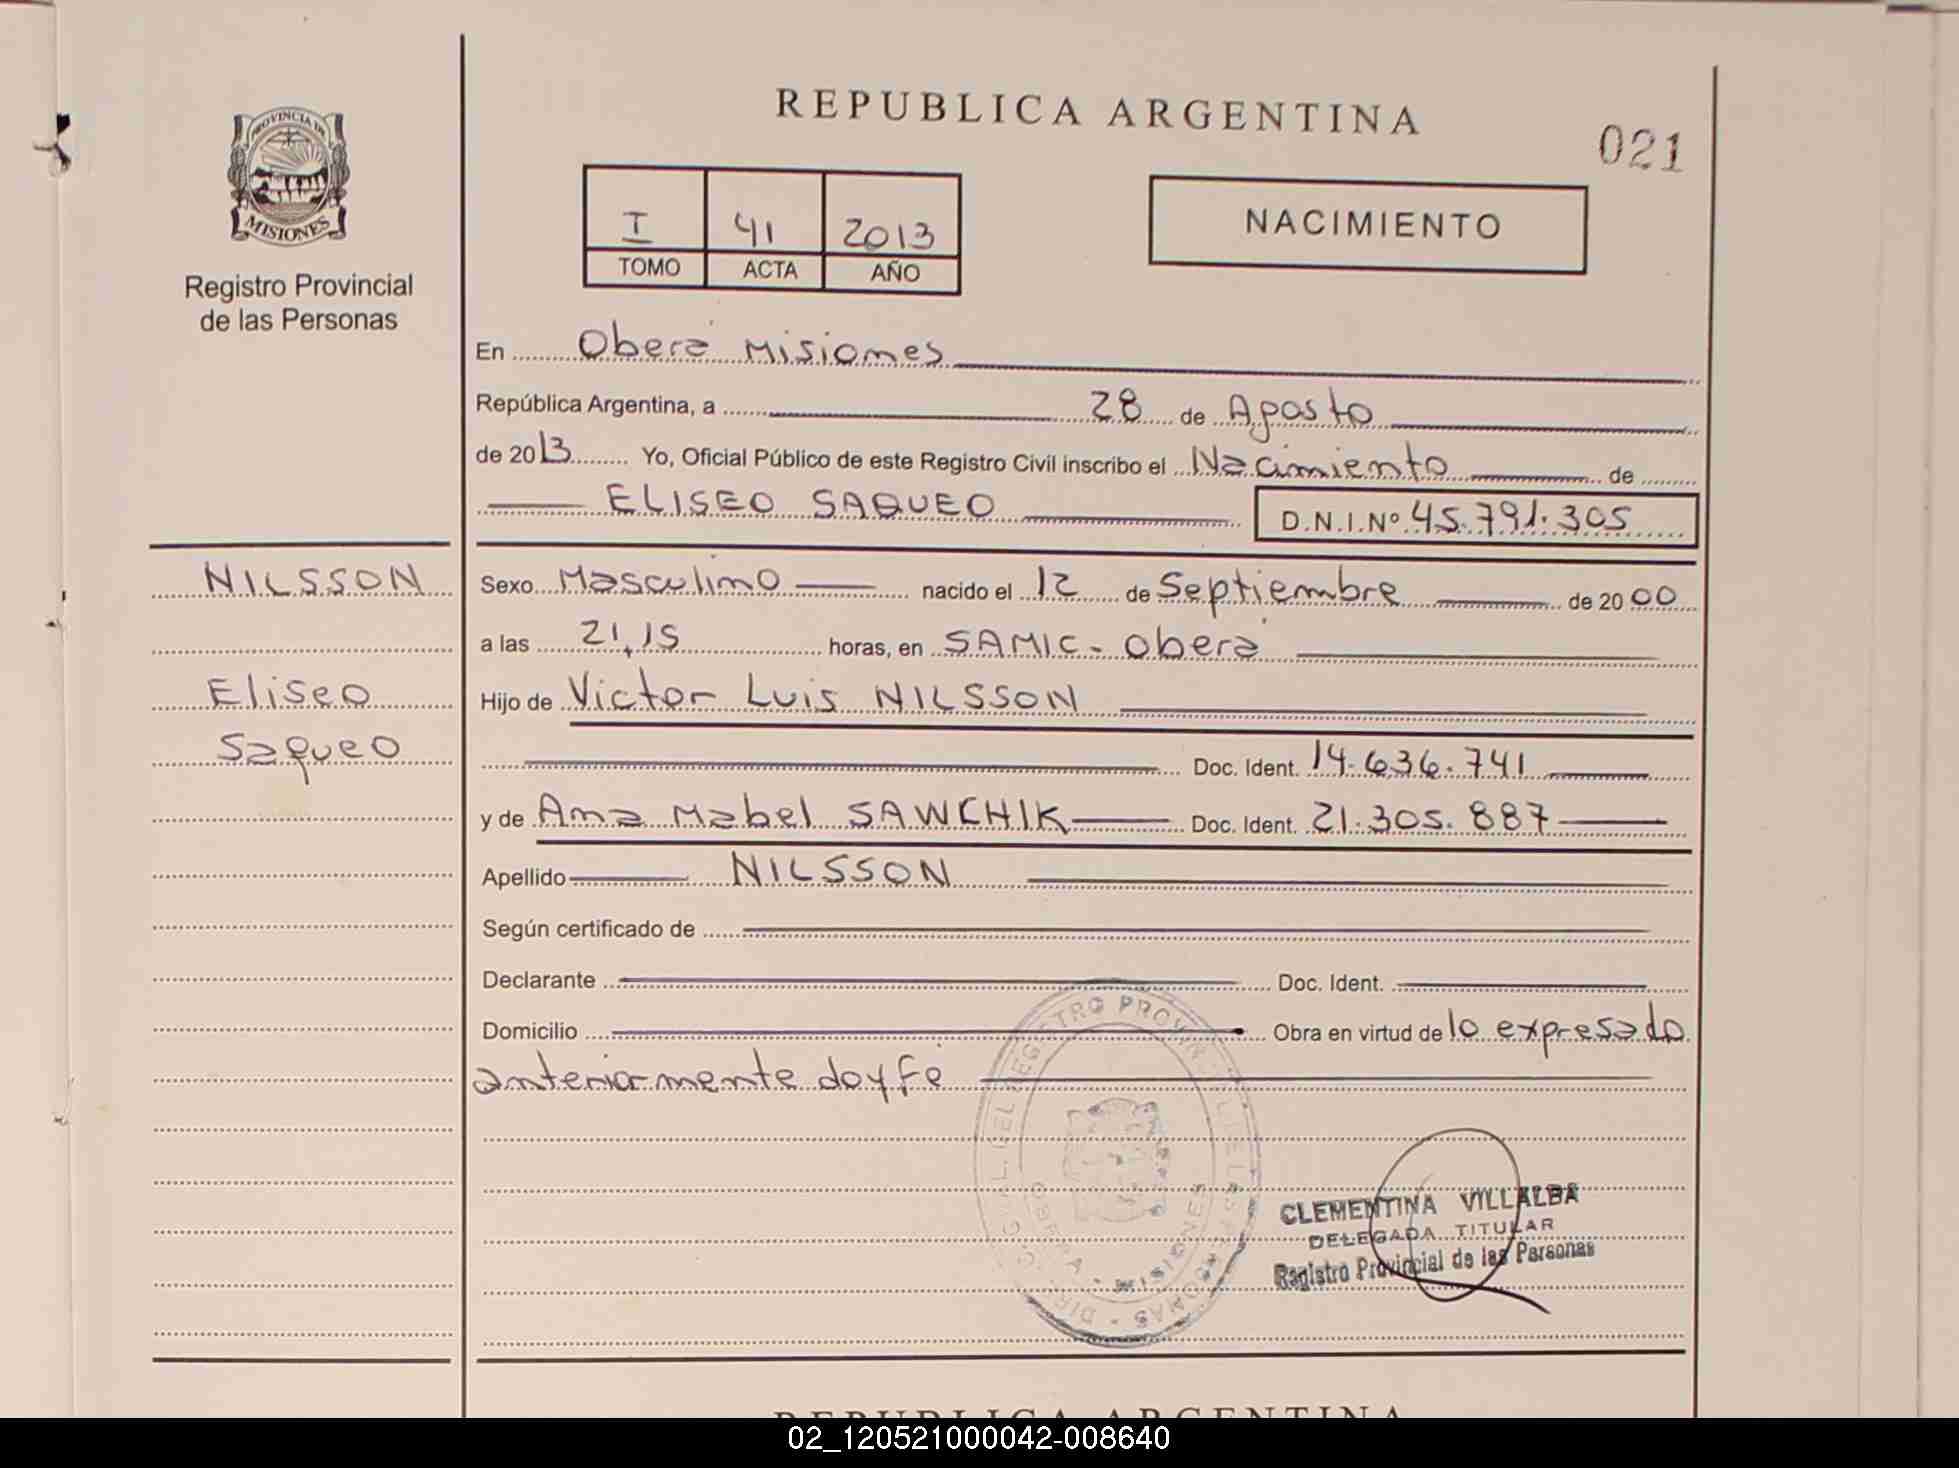 REPUBLICA ARGENTINA
021
PROVINCIA DE
MISIONES
Registro Provincial
de las Personas
I 41 2013
TOMO ACTA AÑO
NACIMIENTO
En Oberá Misiones
República Argentina, a 28 de Agosto
de 2013 Yo, Oficial Público de este Registro Civil inscribo el Nacimiento de
ELISEO SAQUEO D.N.I.Nº 45.791.305
NILSSON
Eliseo
Saqueo
Sexo Masculino nacido el 12 de Septiembre de 2000
a las 21,15 horas, en SAMIC - Oberá
Hijo de Victor Luis NILSSON
Doc. Ident. 14.636.741
y de Ana Mabel SAWCHIK Doc. Ident. 21.305.887
Apellido NILSSON
Según certificado de
Declarante Doc. Ident.
Domicilio Obra en virtud de lo expresado
anteriormente doy fé
CLEMENTINA VILLALBA
DELEGADA TITULAR
Registro Provincial de las Personas
OBERA - MISIONES
REPUBLICA ARGENTINA
02_120521000042-008640